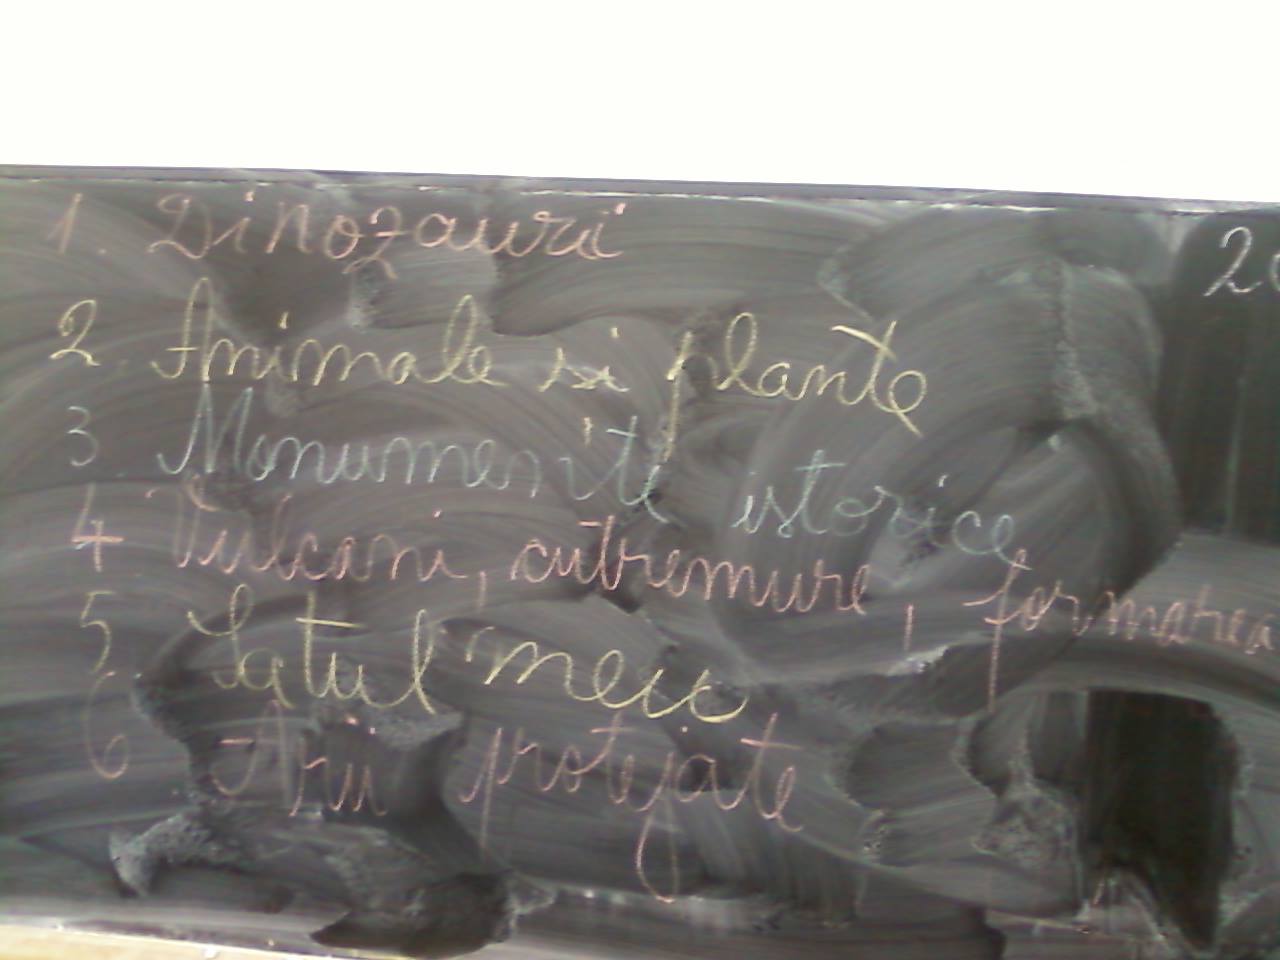 1. Dinozauri
2. Animale si plante
3. Monumente istorice
4 Vulcani, cutremure, formarea
5 Satul meu
6 Arii protejate